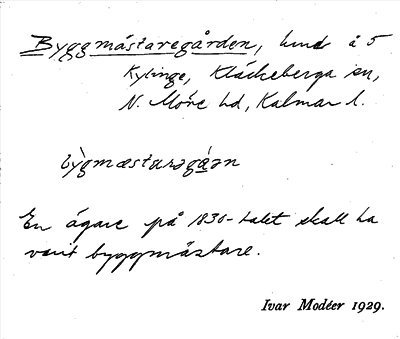 Byggmästaregården, lund å 5
Kylinge, Kläckeberga sn,
N. Möre hd, Kalmar l.
bỳgmæstarəgáən
En ägare på 1830-talet skall ha
varit byggmästare.
Ivar Modéer 1929.